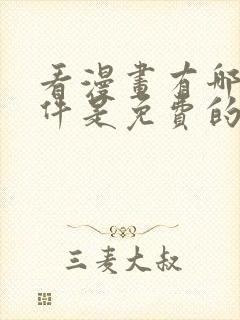 看漫畫有哪
件是免費的
三麦大叔